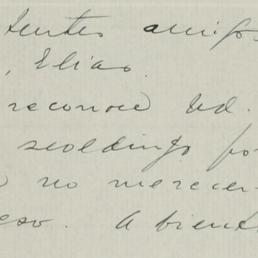 amigo
, Elias.
reconoce Ud.
scoldings por
no merecen
eso. A bient